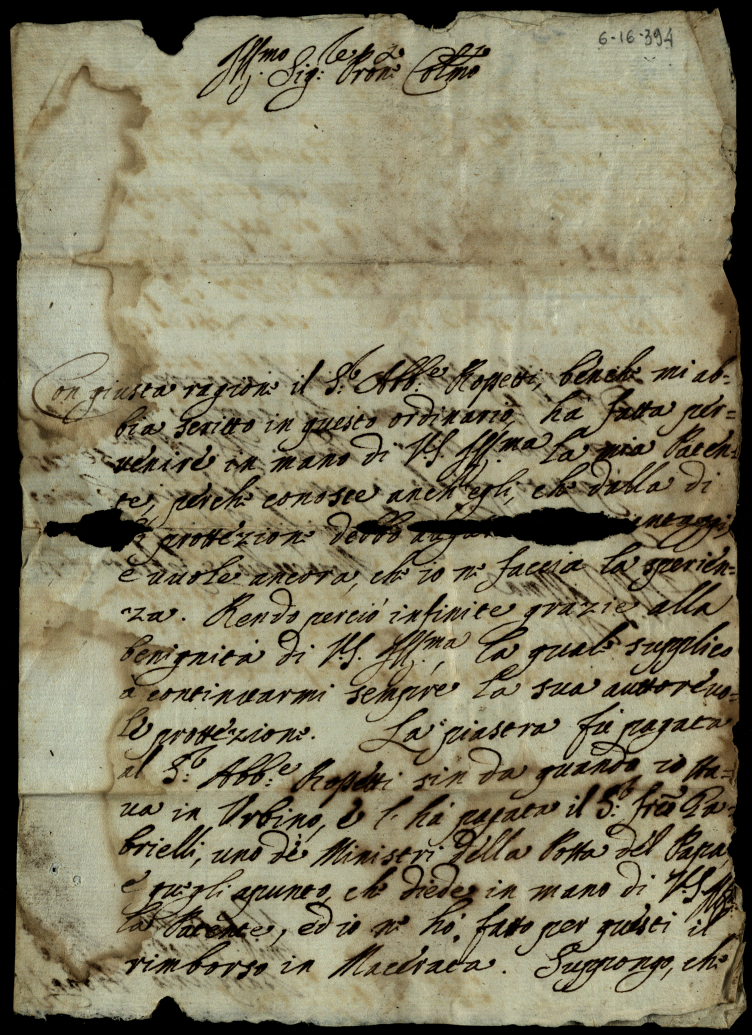 6-16-394
Ill:mo Sig:re e Pron: Col:mo
Con giusta ragion: il S:r Abb:e Rossetti, bench: mi ab-
bia scritto in questo ordinario, ha fatta per-
venire in mano di V.S. Ill:ma la mia Paten-
te, perch: conosce anch'egli, ch: dalla di
protezion: debbo
e vuole ancora, ch: io n: faccia la sperien-
za. Rendo perciò infinite grazie alla
benignità di V.S. Ill:ma, la qual: supplico
a continuarmi sempre la sua auttorevo-
le protezion:. La piastra fù pagata
al S:r Abb:e Rossetti sin da quando io sta-
va in Urbino, e l'hà pagata il S:r Ga-
brielli, uno de Ministri della Posta del Papa
e quegli apunto, ch: diede in mano di V.S. Ill:ma
la Patente, ed io n: hò fatto per questi il
rimborso in Macerata. Suppongo, ch: